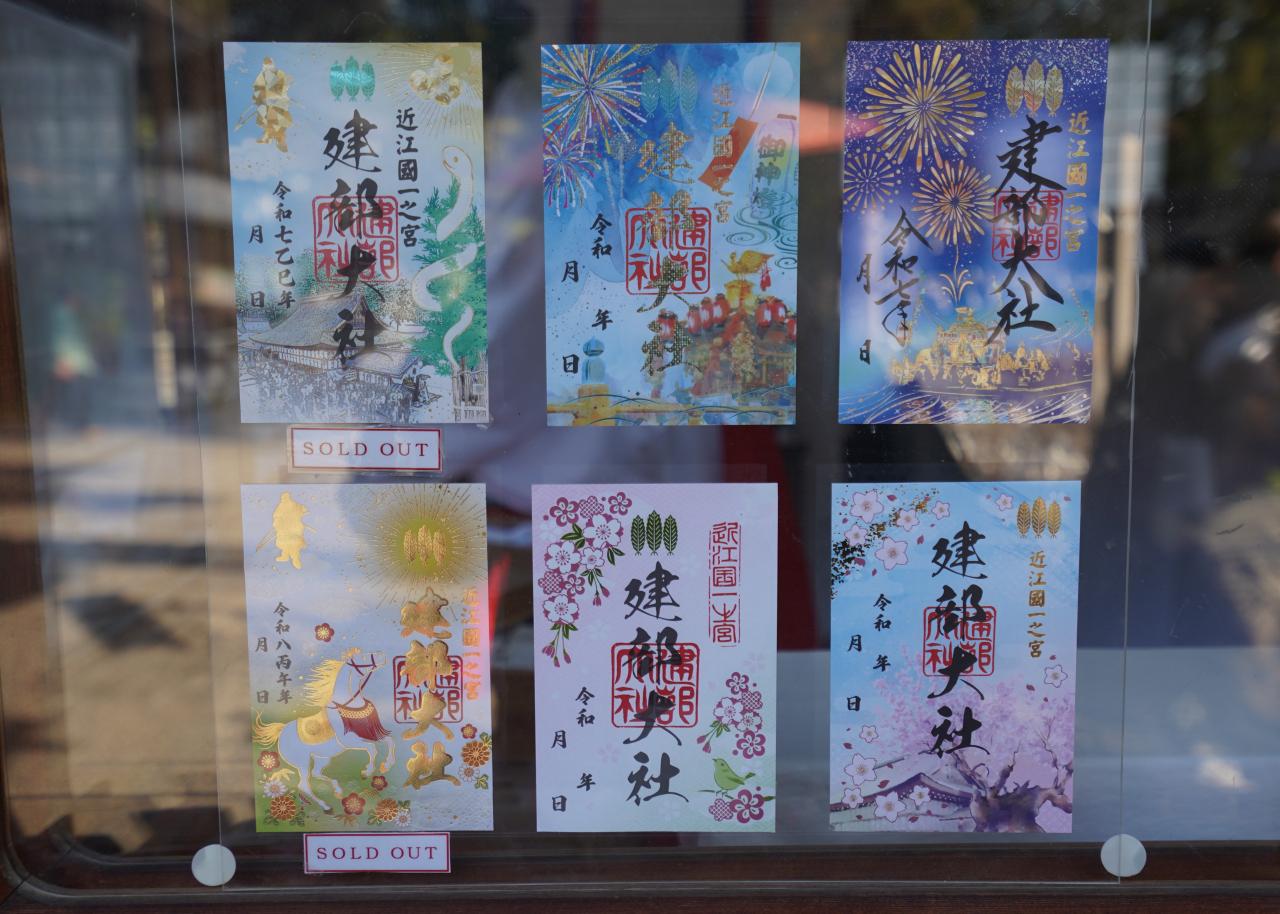 近江國一之宮
建部大社
令和七乙巳年
月
日
建部大社
SOLD OUT
近江國一之宮
御神燈
建部大社
令和
年
月
日
建部大社
近江國一之宮
建部大社
令和七年
月
日
建部大社
近江國一之宮
建部大社
令和八丙午年
月
日
建部大社
SOLD OUT
近江國一之宮
建部大社
令和
年
月
日
建部大社
近江國一之宮
建部大社
令和
年
月
日
建部大社